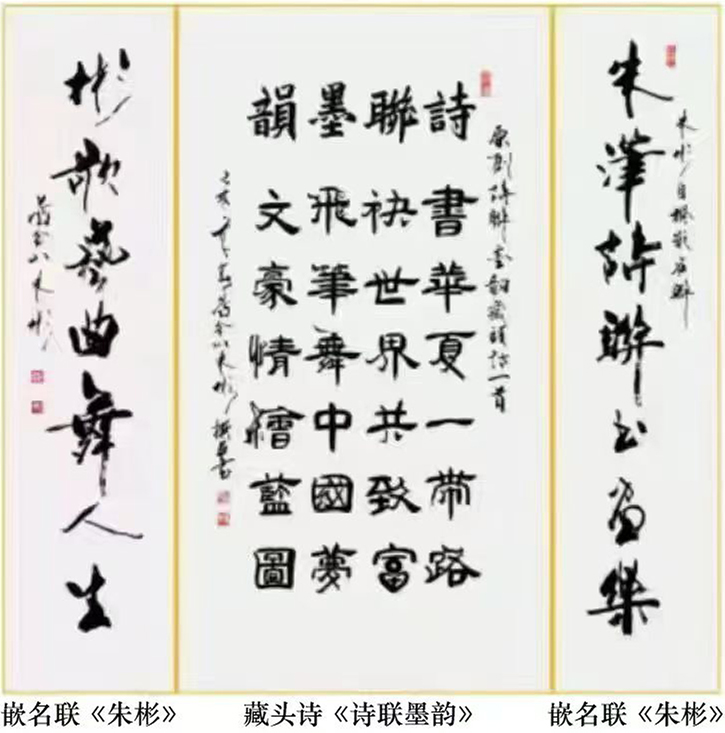 朱詩聯书画樂
朱彬自撰嵌名联
原创诗联墨韵藏头诗一首
詩書華夏一帶路
聯袂世界共致富
墨飛筆舞中國夢
韻文豪情繪藍圖
朱彬撰並書
彬歌藝曲舞人生
朱彬
嵌名联《朱彬》
藏头诗《诗联墨韵》
嵌名联《朱彬》